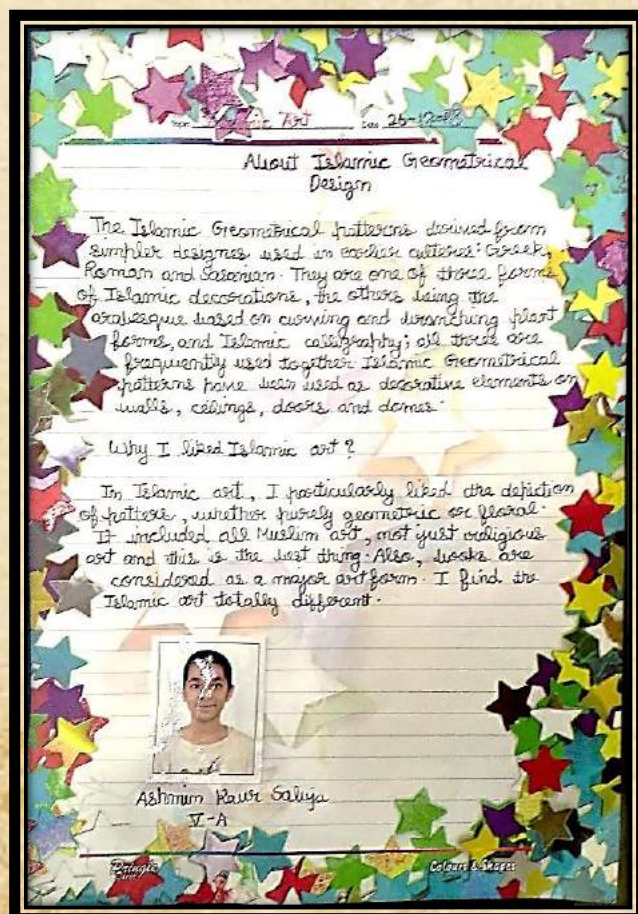 Topic Islamic Art Date 26-12-18
About Islamic Geometrical
Design
The Islamic Geometrical patterns derived from
simpler designes used in earlier cultures: Greek,
Roman and Sasanian. They are one of three forms
of Islamic decorations, the others being the
arabesque based on curving and branching plant
forms, and Islamic calligraphy; all three are
frequently used together Islamic Geometrical
patterns have been used as decorative elements on
walls, ceilings, doors and domes.
Why I liked Islamic art?
In Islamic art, I particularly liked the depiction
of patters, whether purely geometric or floral.
It included all Muslim art, not just religious
art and this is the best thing. Also, books are
considered as a major art form. I find the
Islamic art totally different.
Ashmin Kaur Saluja
V-A
Pringle
Colours & Shapes